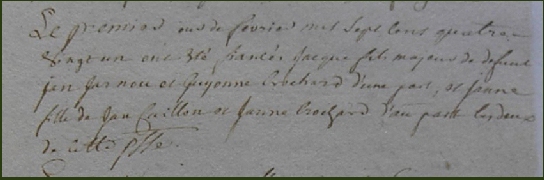 Le premier jour de fevrier mil sept cens quatre
vingt un ont été fiancés Jacque fils majeur de defunt
jan Jarnou et Guyonne Brochard d'une part, et Jeanne
fille de Jan Caillon et Janne Brochard d'au part tous deux
de cette psse.